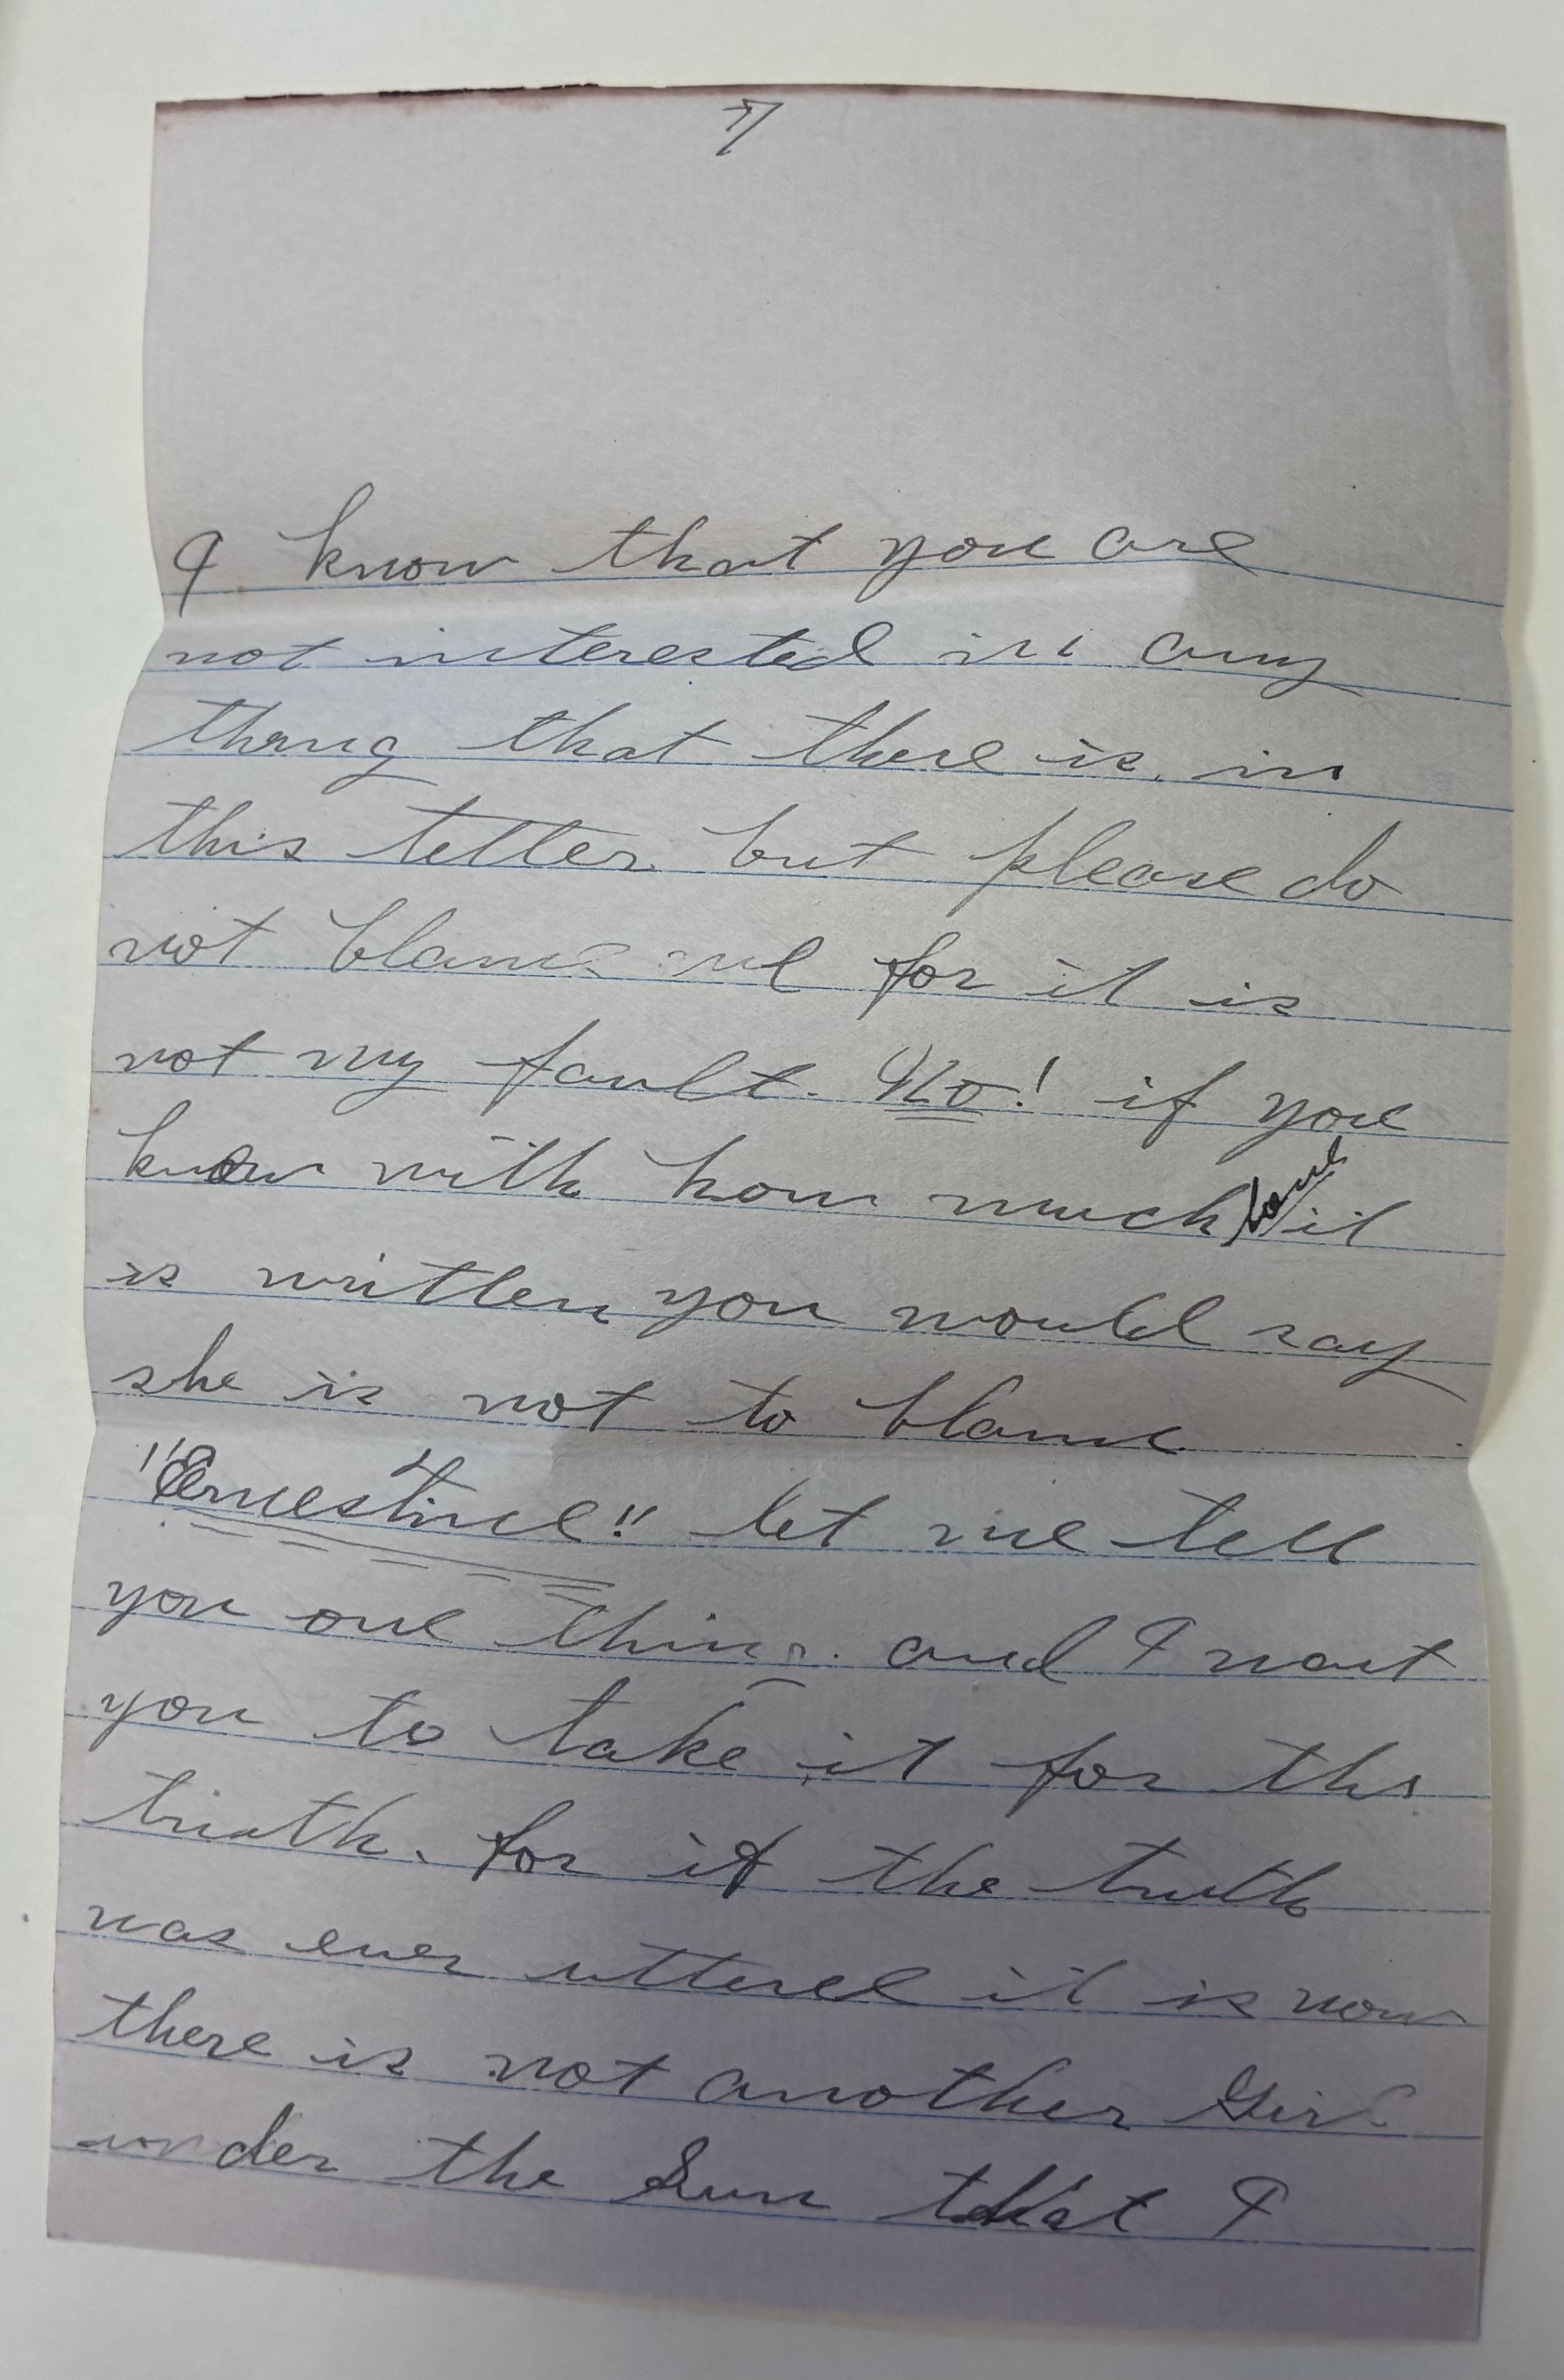 7
I know that you are
not interested in any
thing that there is in
this letter but please do
not blame me for it is
not my fault. No! if you
know with how much love it
is written you would say
she is not to blame
"Ernestine!! let me tell
you one thing. and I want
you to take it for the
truth. for if the truth
was ever uttered it is now
there is not another Girl
under the Sun that I